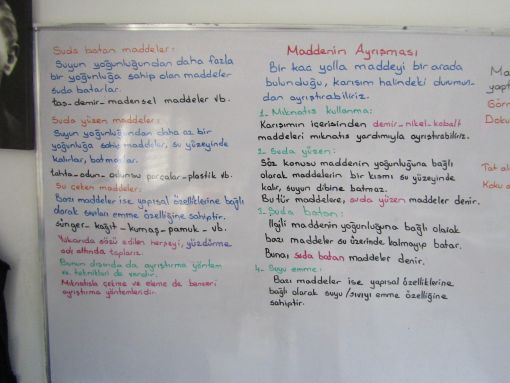 Suda batan maddeler:
Suyun yoğunluğundan daha fazla
bir yoğunluğa sahip olan maddeler
suda batarlar.
taş-demir-madensel maddeler vb.
Suda yüzen maddeler:
Suyun yoğunluğundan daha az bir
yoğunluğa sahip maddeler, su yüzeyinde
kalırlar, batmazlar.
tahta-odun-odunsu parçalar-plastik vb.
Su çeken maddeler:
Bazı maddeler ise yapısal özelliklerine bağlı
olarak sıvıları emme özelliğine sahiptir.
sünger-kağıt-kumaş-pamuk-vb.
Yukarıda sözü edilen herşeyi, yüzdürme
adı altında toplarız.
Bunun dışında da ayrıştırma yöntem
ve teknikleri de vardır.
Mıknatısla çekme ve eleme de benzeri
ayrıştırma yöntemleridir.
Maddenin Ayrışması
Bir kaç yolla maddeyi bir arada
bulunduğu, karışım halindeki durumun-
dan ayrıştırabiliriz.
1- Mıknatıs kullanma:
Karışımın içerisinden demir-nikel-kobalt
maddeleri mıknatıs yardımıyla ayrıştırabiliriz.
2- Suda yüzen:
Söz konusu maddenin yoğunluğuna bağlı
olarak maddelerin bir kısmı su yüzeyinde
kalır, suyun dibine batmaz.
Bu tür maddelere, suda yüzen maddeler denir.
3- Suda batan:
İlgili maddenin yoğunluğuna bağlı olarak
bazı maddeler su üzerinde kalmayıp batar.
Buna suda batan maddeler denir.
4- Suyu emme:
Bazı maddeler ise yapısal özelliklerine
bağlı olarak suyu/sıvıyı emme özelliğine
sahiptir.
Ma
yapt
Görm
Doku
Tat al
Koku a